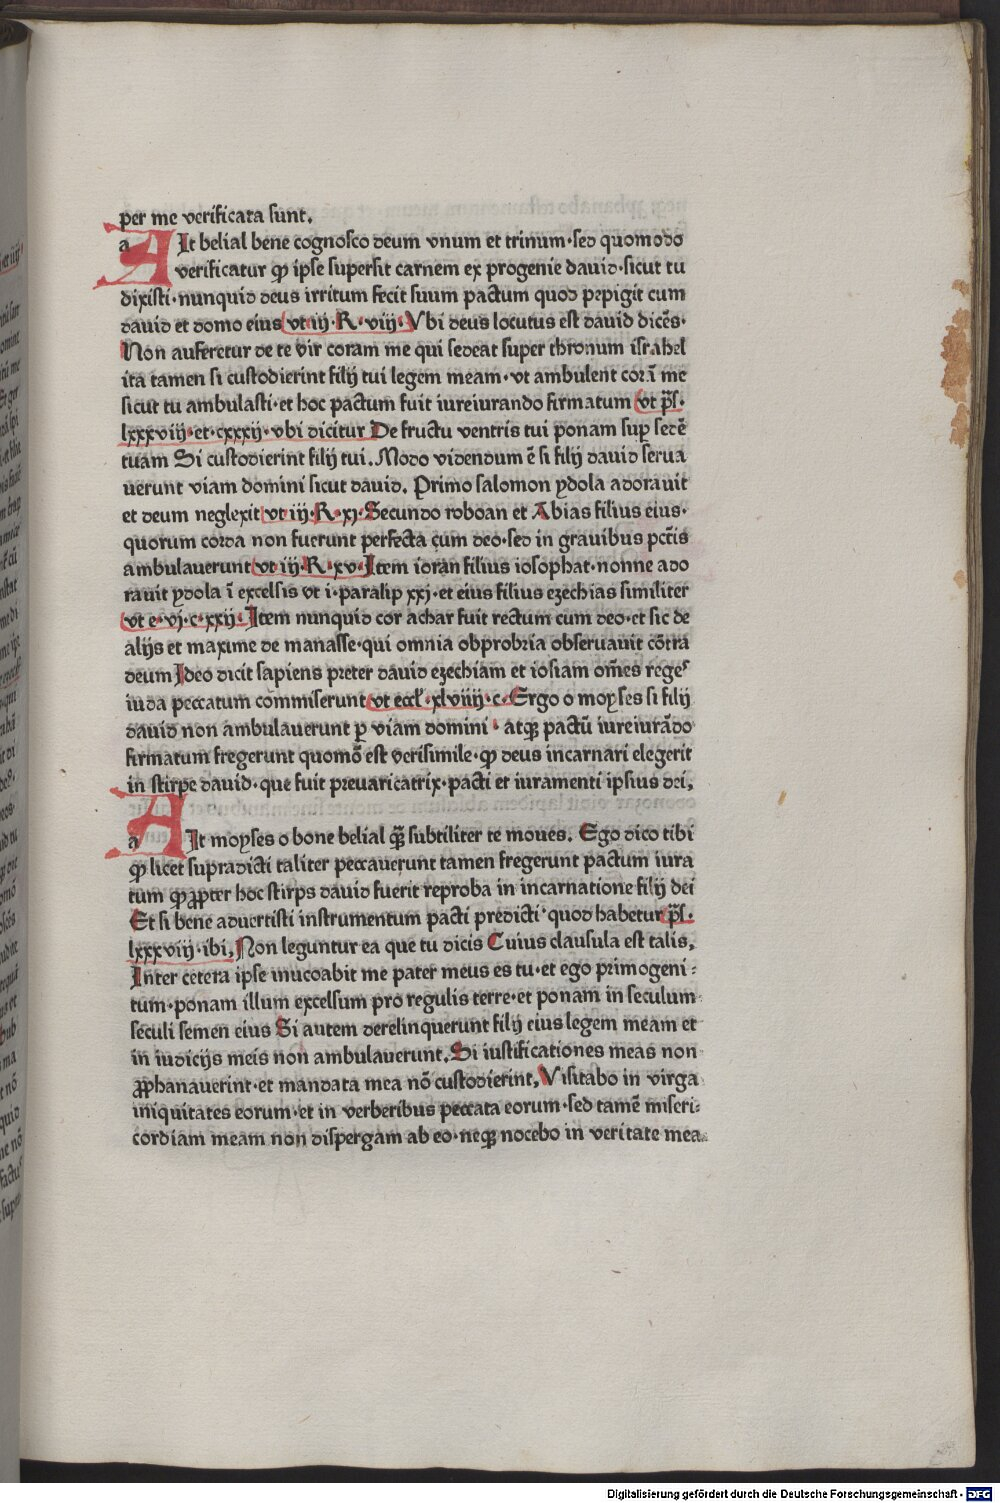 per me verificata sunt.
AIt belial bene cognosco deum vnum et trinum·sed quomodo
verificatur ꝙ ipse supersit carnem ex progenie dauid·sicut tu
dixisti·nunquid deus irritum fecit suum pactum quod pepigit cum
dauid et domo eius vt iij·R·viij·Vbi deus locutus est dauid dicẽs·
Non auferetur de te vir coram me qui sedeat super thronum israhel
ita tamen si custodierint filij tui legem meam·vt ambulent corã me
sicut tu ambulasti·et hoc pactum fuit iureiurando firmatum vt p̃s·
lxxxviij·et·cxxxij·vbi dicitur De fructu ventris tui ponam sup sedẽ
tuam Si custodierint filij tui. Modo videndum ẽ si filij dauid serua
uerunt viam domini sicut dauid. Primo salomon ydola adorauit
et deum neglexit vt iij·R·xj·Secundo roboan et Abias filius eius·
quorum corda non fuerunt perfecta cum deo·sed in grauibus pctĩs
ambulauerunt vt iij·R·xv·Item ioran filius iosophat·nonne ado
rauit ydola ĩ excelsis vt i·paralip xxj·et eius filius ezechias similiter
vt e·vj·c·xxij·Item nunquid cor achar fuit rectum cum deo·et sic de
alijs et maxime de manasse·qui omnia obprobria obseruauit cõtra
deum Ideo dicit sapiens preter dauid ezechiam et iosiam om̃es reges
iuda peccatum commiserunt vt eccl̃·xlviiij·c·Ergo o moyses si filij
dauid non ambulauerunt ꝑ viam domini·atqꝫ pactũ iureiurãdo
firmatum fregerunt quomõ est verisimile·ꝙ deus incarnari elegerit
in stirpe dauid·que fuit preuaricatrix·pacti et iuramenti ipsius dei,
AIt moyses o bone belial q̃ꝫ subtiliter te moues. Ego dico tibi
ꝙ licet supradicti taliter peccauerunt tamen fregerunt pactum iura
tum ꝙ ꝓpter hoc stirps dauid fuerit reproba in incarnatione filij dei
Et si bene aduertisti instrumentum pacti predicti·quod habetur p̃s·
lxxxviij·ibi, Non leguntur ea que tu dicis Cuius clausula est talis,
Inter cetera ipse inuocabit me pater meus es tu·et ego primogeni:
tum·ponam illum excelsum pro regulis terre·et ponam in seculum
seculi semen eius Si autem derelinquerunt filij eius legem meam et
in iudicijs meis non ambulauerunt, Si iustificationes meas non
ꝓphanauerint·et mandata mea nõ custodierint, Visitabo in virga
iniquitates eorum·et in verberibus peccata eorum·sed tamẽ miseri:
cordiam meam non dispergam ab eo·neqꝫ nocebo in veritate mea
Digitalisierung gefördert durch die Deutsche Forschungsgemeinschaft - DFG